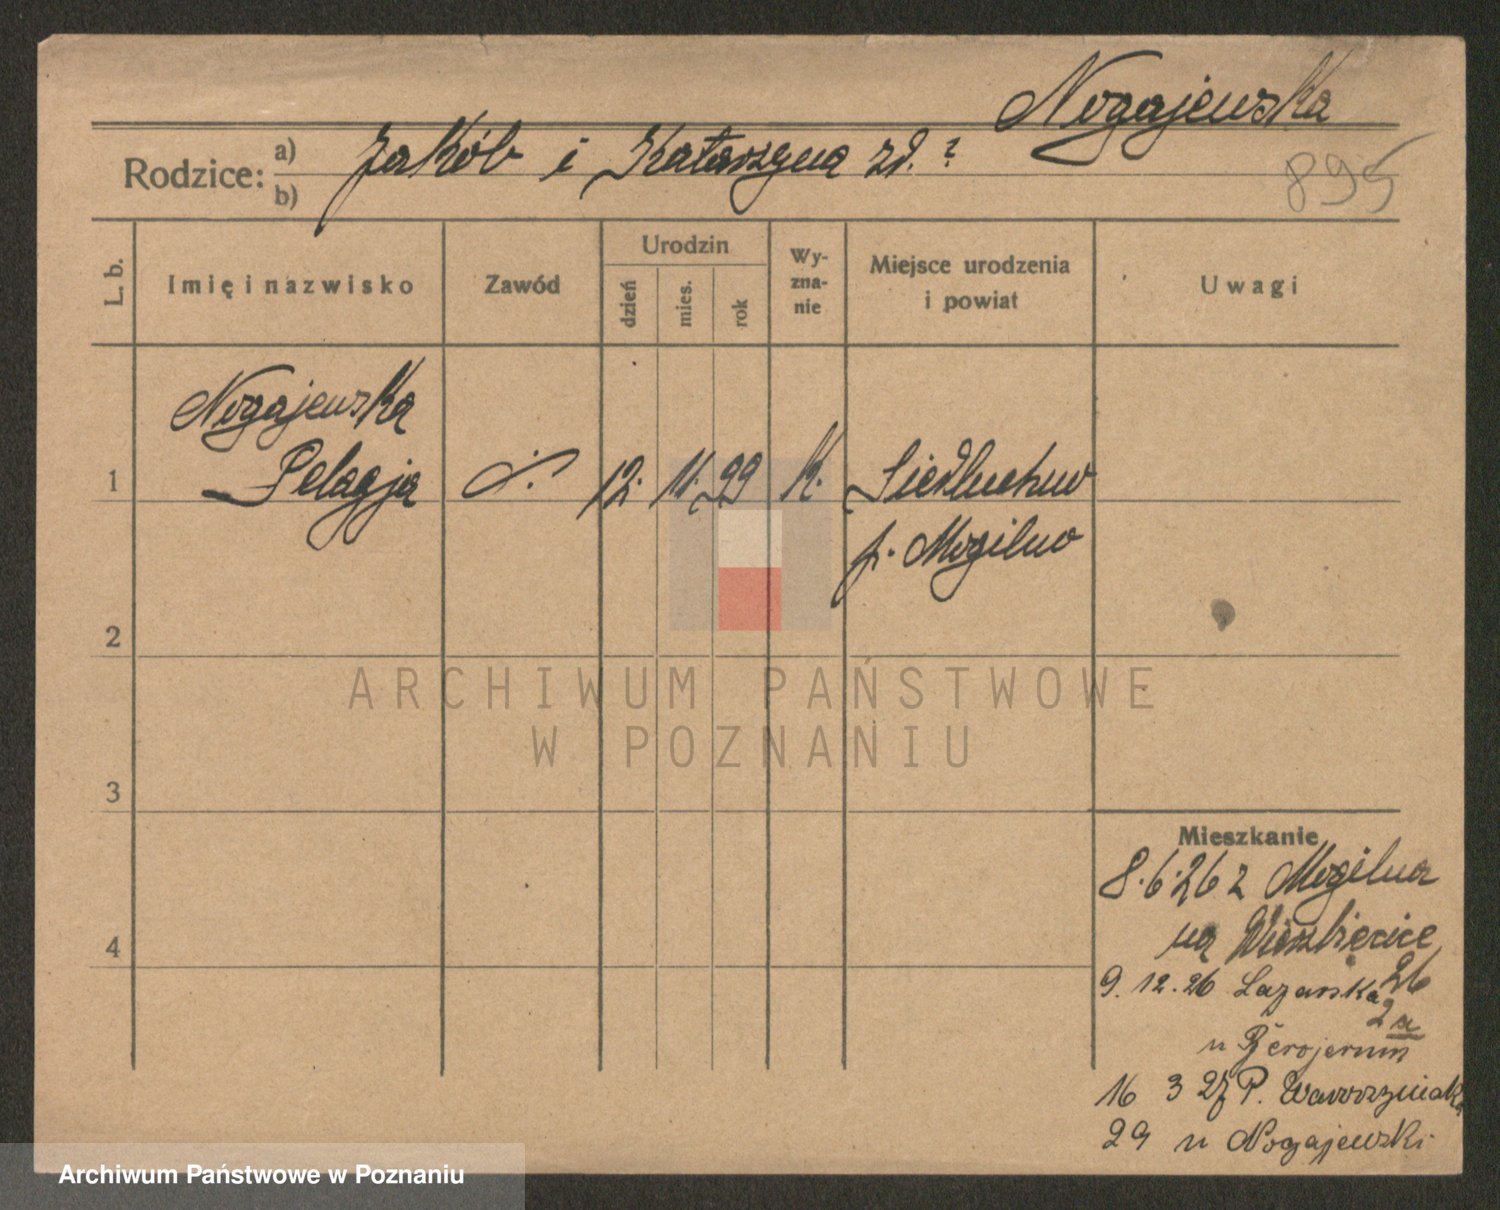 Nogajewska
Rodzice: a) b) Jakób i Katarzyna zd. ?
895
L. b.
Imię i nazwisko
Zawód
Urodzin
dzień
mies.
rok
Wy-
zna-
nie
Miejsce urodzenia
i powiat
Uwagi
Nogajewska
1 Pelagja 12. 11. 99 k. Siedluchno
p. Mogilno
2
3
4
ARCHIWUM PAŃSTWOWE
W POZNANIU
Mieszkanie
8.6.26 z Mogilna
na Wierzbięcice
26
9. 12. 26 Łazarska
2a
u
16 3 27 P. Wawrzyniaka
29 u Nogajewski
Archiwum Państwowe w Poznaniu